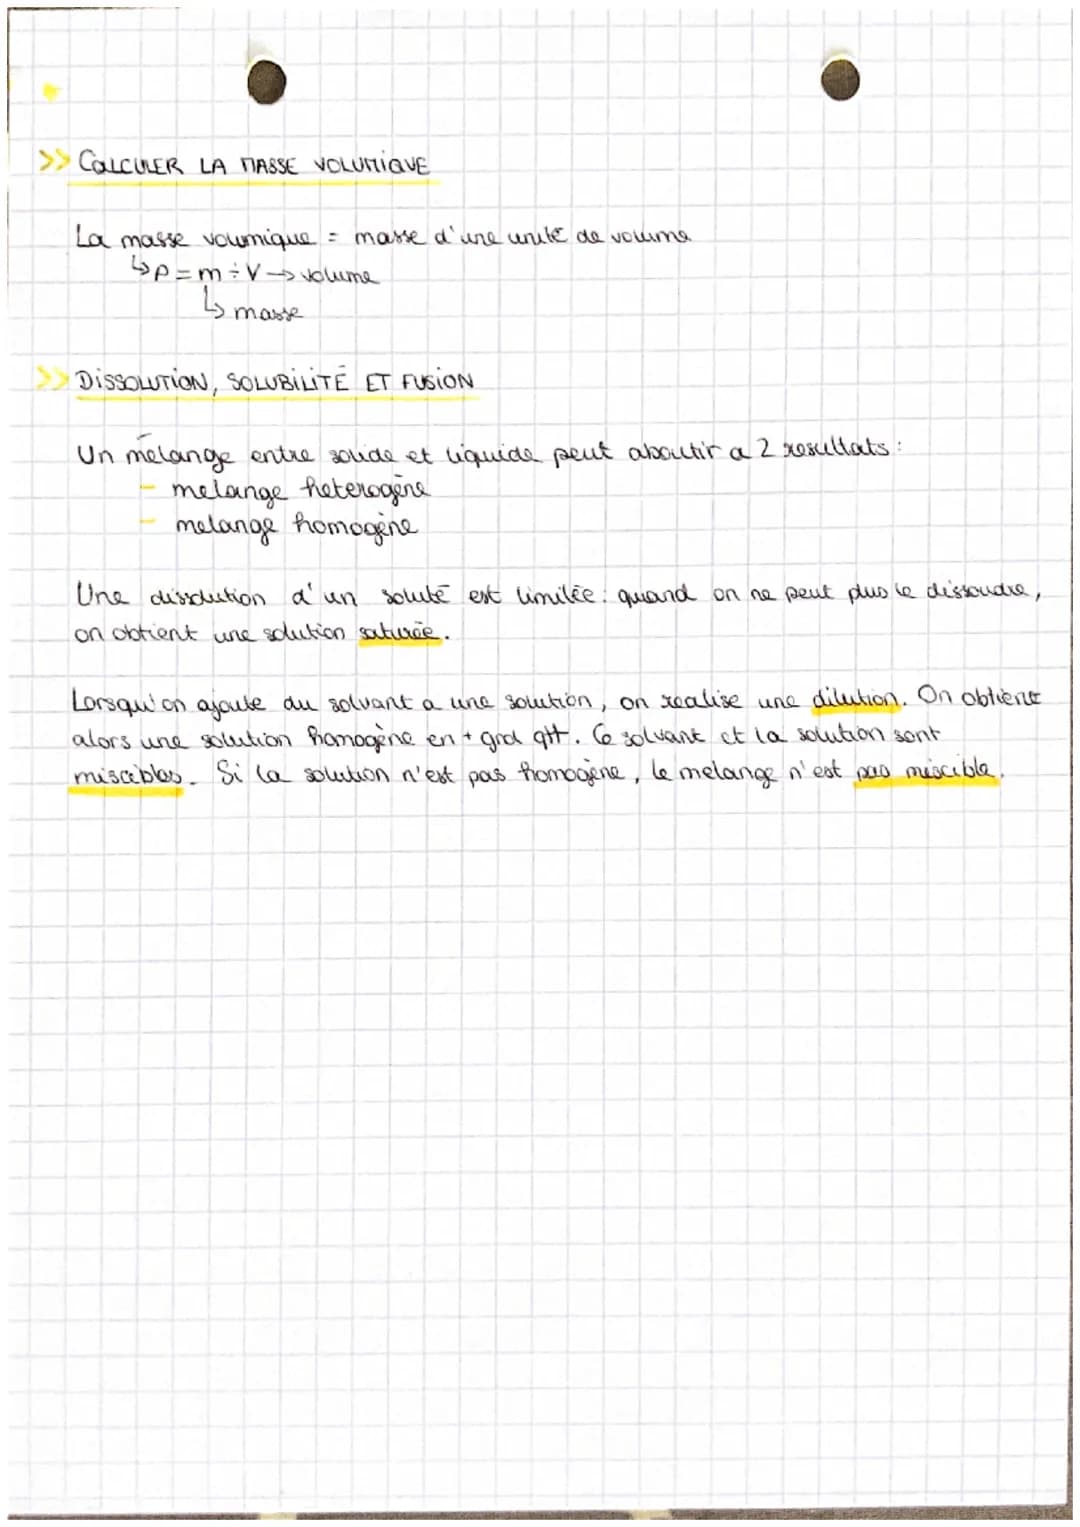 >> CALCULER LA MASSE VOLUMIQUE
La masse volumique = masse d'une unité de volume
↳ρ = m ÷ V → volume
↳ masse
>> DISSOLUTION, SOLUBILITÉ ET FUSION
Un mélange entre solide et liquide peut aboutir a 2 resultats :
- melange heterogène
- melange homogène
Une dissolution d'un soluté est limitée : quand on ne peut plus le dissoudre,
on obtient une solution saturée.
Lorsqu'on ajoute du solvant a une solution, on realise une dilution. On obtient
alors une solution homogène en + grd qtt. Ce solvant et la solution sont
miscibles. Si la solution n'est pas homogène, le melange n'est pas miscible.